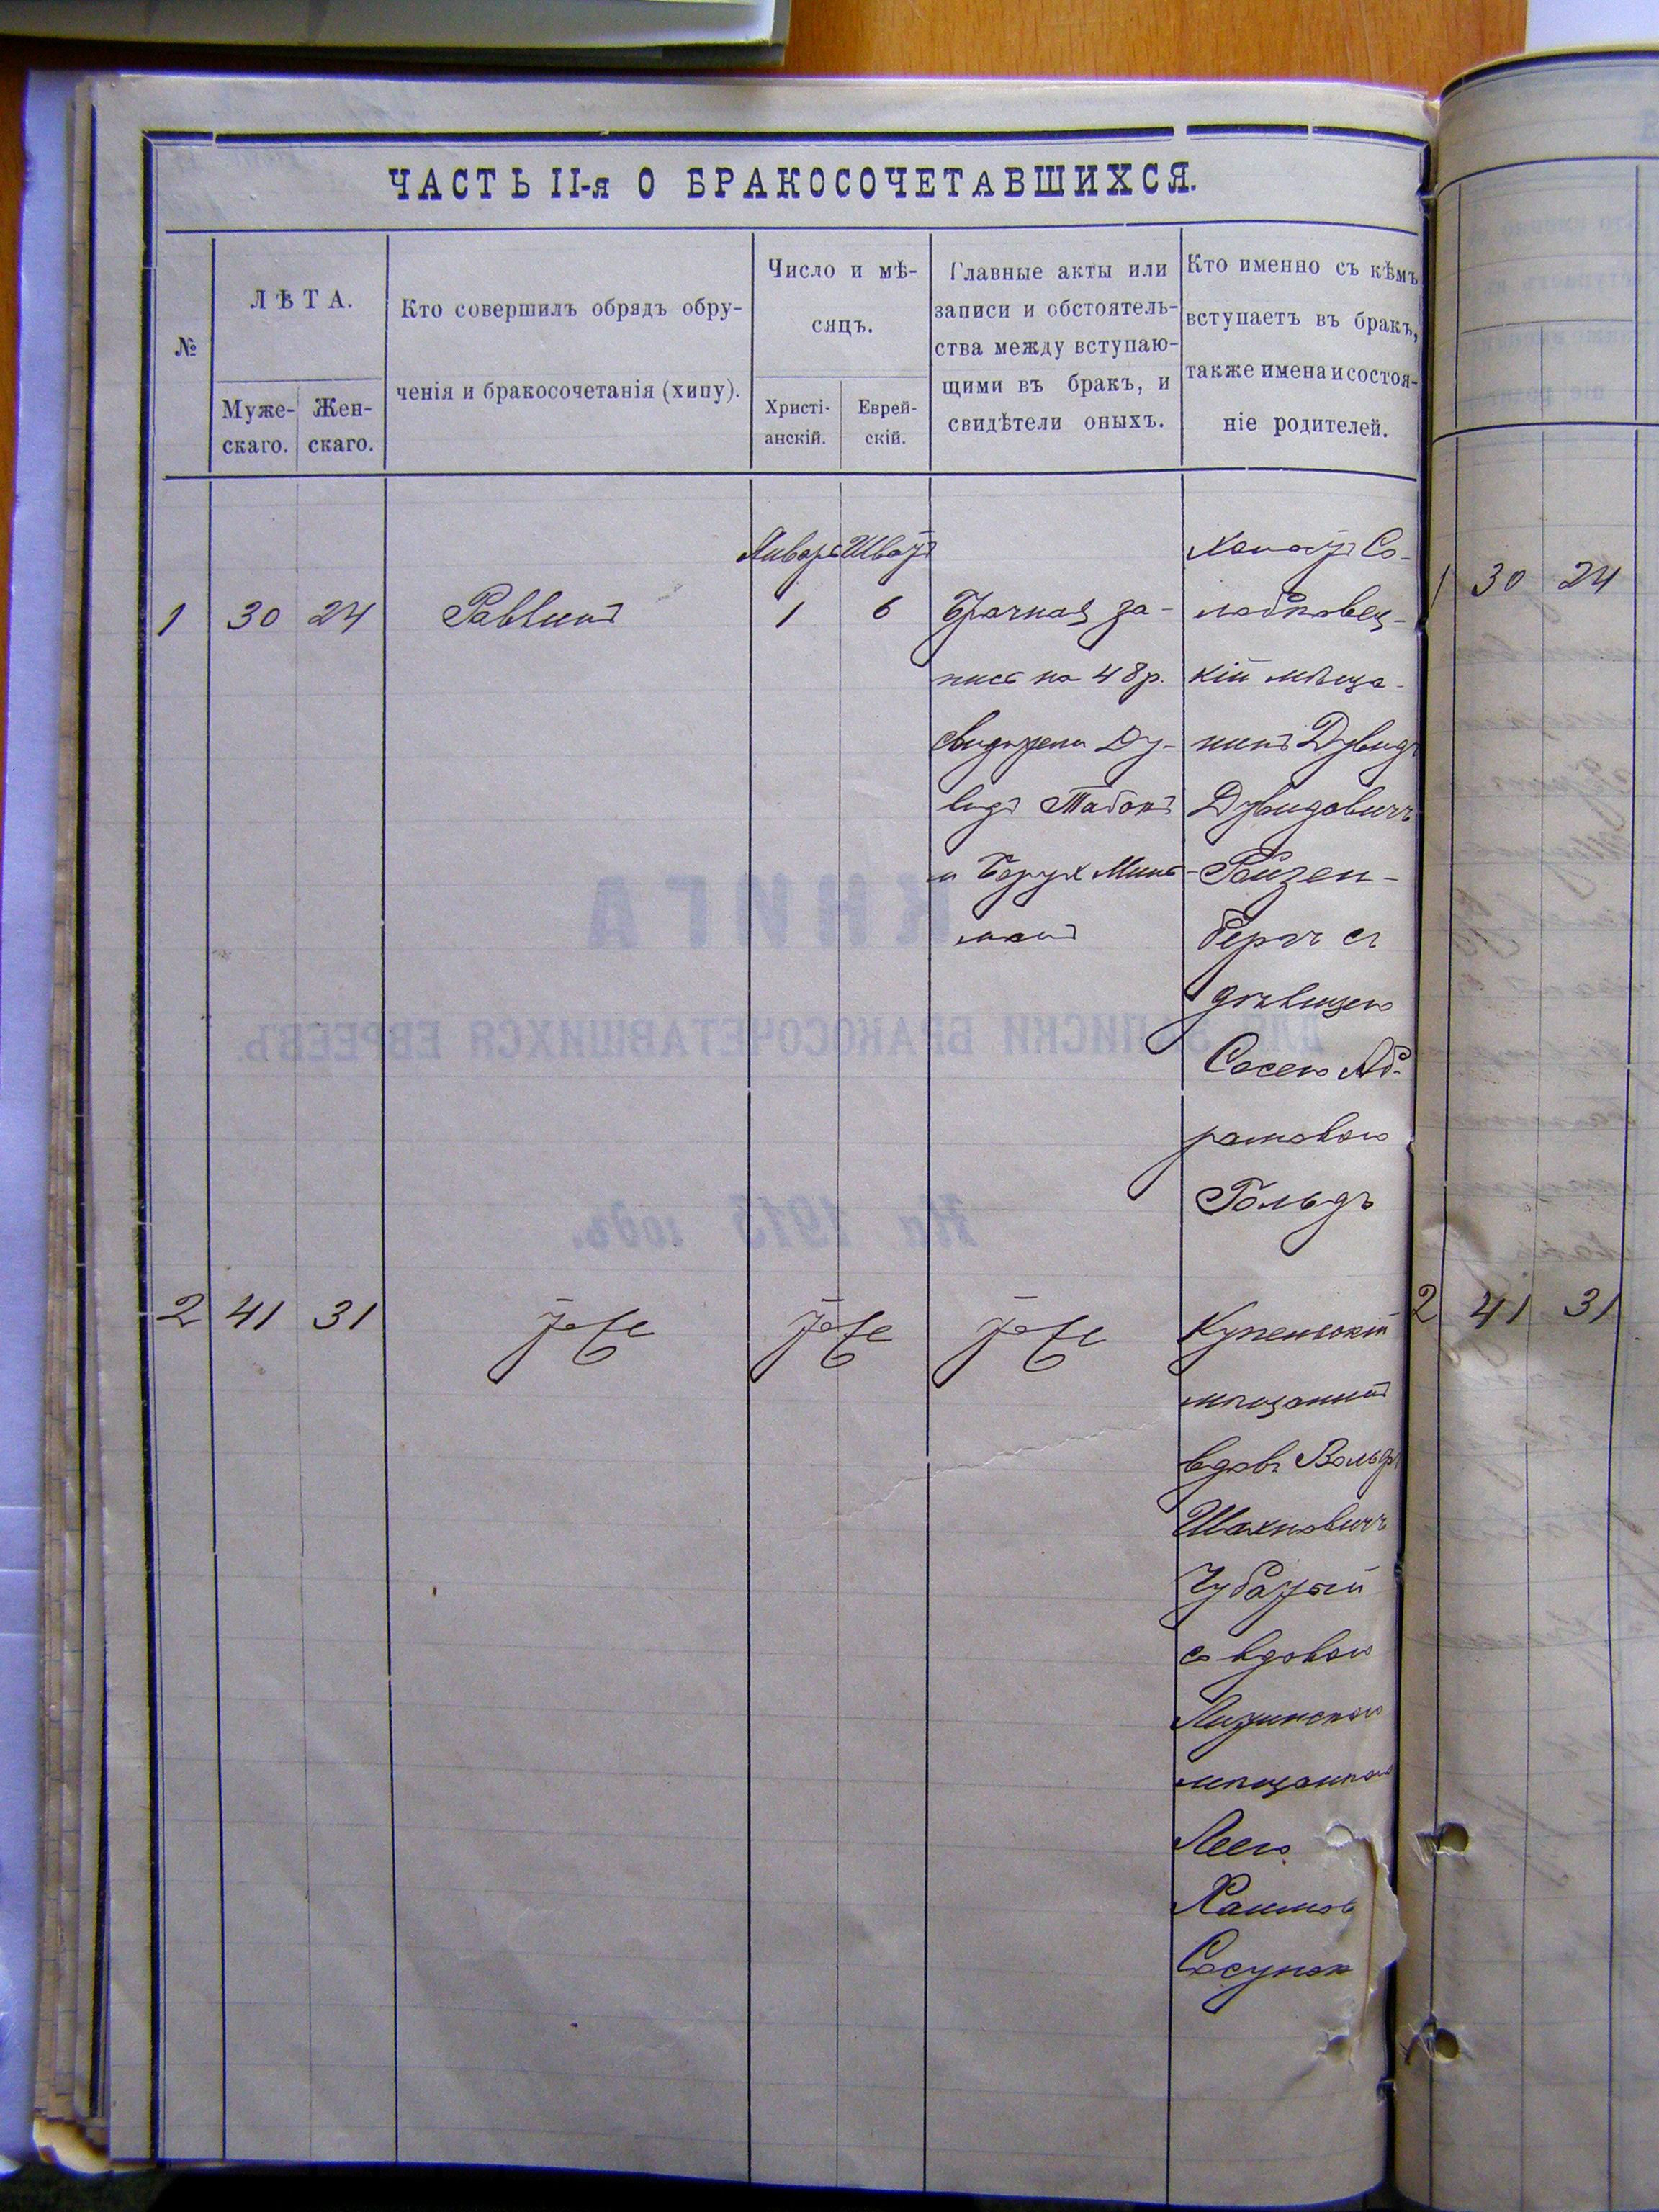 ЧАСТЬ II-я О БРАКОСОЧЕТАВШИХСЯ.
№
ЛѢТА.
Муже-
скаго.
Жен-
скаго.
Кто совершилъ обрядъ обру-
ченія и бракосочетанія (хипу).
Число и мѣ-
сяцъ.
Христі-
анскій.
Еврей-
скій.
Главные акты или
записи и обстоятель-
ства между вступаю-
щими въ бракъ, и
свидѣтели оныхъ.
Кто именно съ кѣмъ
вступаетъ въ бракъ,
также имена и состоя-
ніе родителей.
1
30
24
Раввинъ
Января
1
Шватъ
6
Брачная за-
пись на 48 р.
свидѣтели Ду-
видъ
и Борух
манъ
Холостъ Со-
лобковец-
кій мѣща-
нинъ Дувидъ
Дувидовичъ
Ройзен-
бергъ съ
дѣвицею
Сосею Аб-
рамовою
Гольдъ
2
41
31
тоже
тоже
тоже
Купельскій
мѣщанинъ
вдовъ Вольфъ
Шахновичъ
Чубатый
со вдовою
Лятинскою
мѣщанкою
Леею
Хаимов
Сосунок
1 30 24
2 41 31
КНИГА
ДЛЯ ЗАПИСКИ БРАКОСОЧЕТАВШИХСЯ ЕВРЕЕВЪ.
На 1915 годъ.